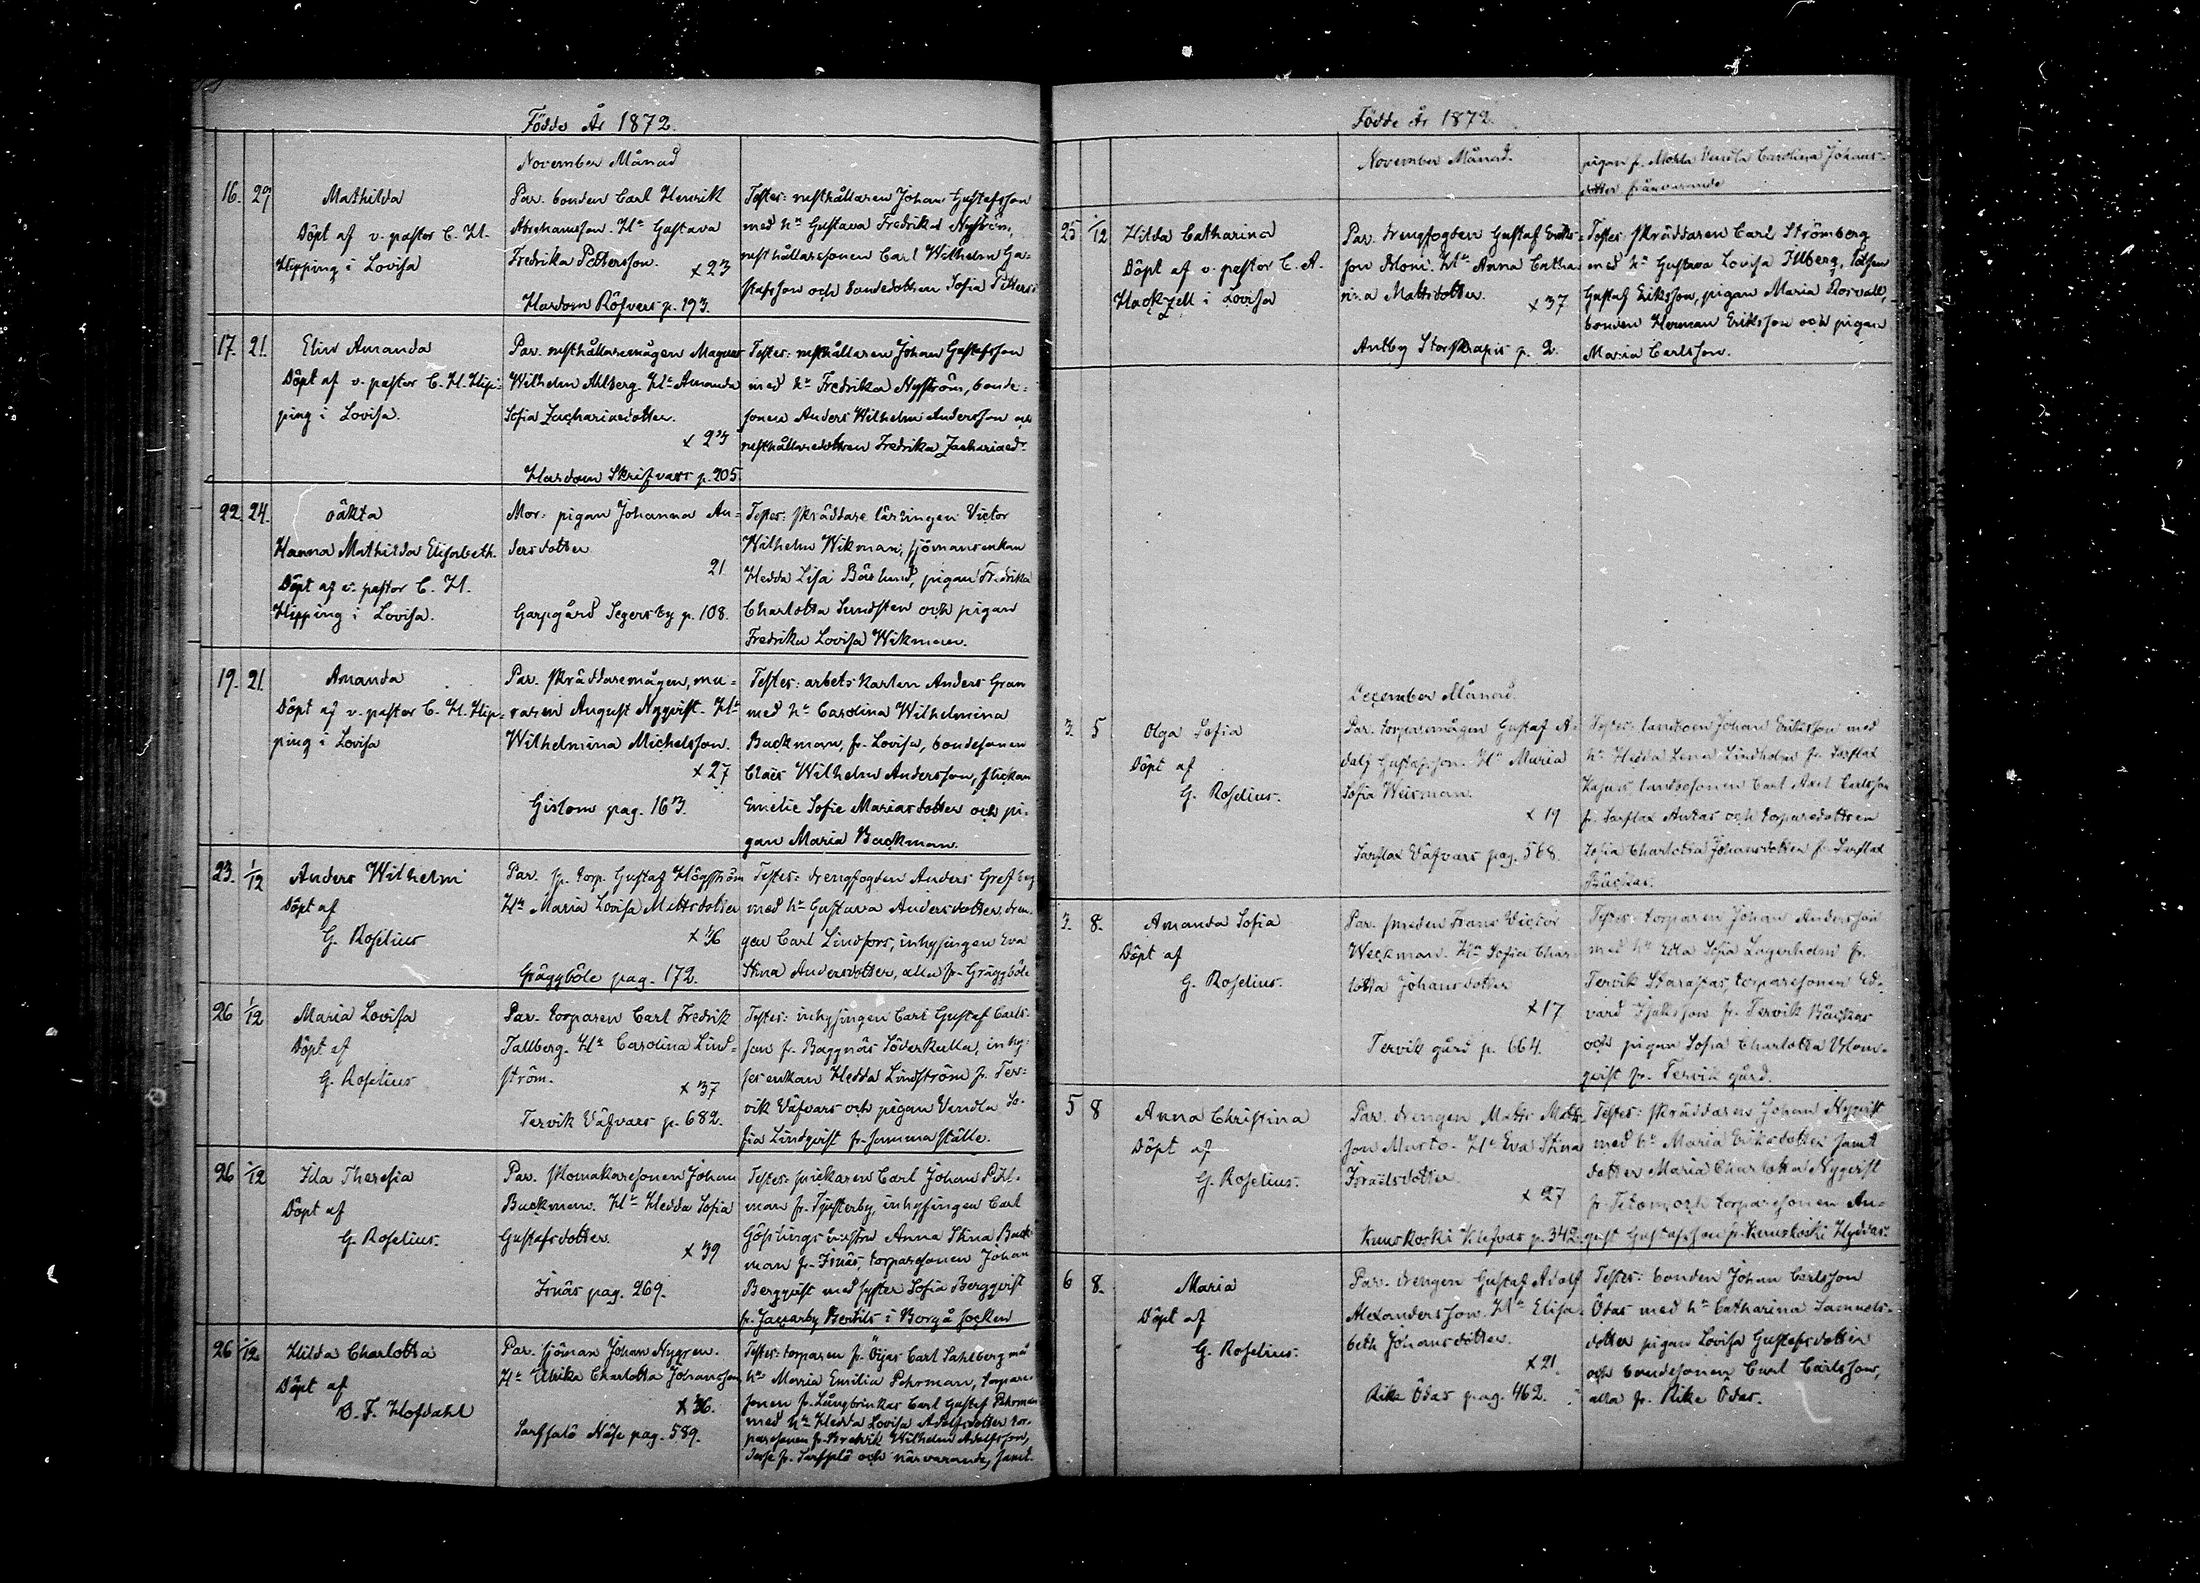 Födde År 1872.
November Månad
16. 29 Mathilda
Döpt af v. pastor C. H.
Hipping i Lovisa
Par. bonden Carl Henrik
Abrahamsson. Hu Gustava
Fredrika Pettersson.
x 23
Hardom Röfvars p. 193.
Testes: rusthållaren Johan Gustafsson
med hu Gustava Fredrika Nyström,
rusthållarsonen Carl Wilhelm Gu-
stafsson och bondedottren Sofia Petters:
17. 21. Elin Amanda
Döpt af v. pastor C. H. Hip-
ping i Lovisa.
Par. rusthållaremågen Magnus
Wilhelm Ahlberg. Hu Amanda
Sofia Zachariaedotter.
x 23
Hardom Skrifvars p. 205.
Testes: rusthållaren Johan Gustafsson
med hu Fredrika Nyström, bonde-
sonen Anders Wilhelm Andersson och
rusthållaredottren Fredrika Zachariaedr
22. 24. oäkta
Hanna Mathilda Elisabeth.
Döpt af v. pastor C. H.
Hipping i Lovisa.
Mor. pigan Johanna An-
dersdotter
21
Garpgård Segersby p. 108.
Testes: skräddare lärlingen Victor
Wilhelm Wikman, sjömansenkan
Hedda Lisa Båslund, pigan Fredrika
Charlotta Sundsten och pigan
Fredrika Lovisa Wikman.
19. 21. Amanda
Döpt af v. pastor C. H. Hip-
ping i Lovisa
Par. skräddaremågen, mu-
raren August Nyqvist. Hu
Wilhelmina Michelsson.
x 27
Gislom pag. 163.
Testes: arbetskarlen Anders Gran
med hu Carolina Wilhelmina
Backman, fr. Lovisa, bondesonen
Claës Wilhelm Andersson, flickan
Emelie Sofie Mariasdotter och pi-
gan Maria Backman.
23. 1/12 Anders Wilhelm
Döpt af
G. Roselius
Par. sp. torp. Gustaf Högström
Hu Maria Lovisa Mattsdotter
x 36
Gräggböle pag. 172.
Testes: drengfogden Anders Grefberg
med hu Gustava Andersdotter, dren-
gen Carl Lindfors, inhysingen Eva
Stina Andersdotter, alla fr. Gräggböle
26 1/12 Maria Lovisa
Döpt af
G. Roselius
Par. torparen Carl Fredrik
Tallberg. Hu Carolina Lind-
ström.
x 37
Tervik Väfvars p. 682.
Testes: inhysingen Carl Gustaf Carls-
son fr. Baggnäs Söderkulla, inhy-
ses enkan Hedda Lindström fr. Ter-
vik Väfvars och pigan Vendla So-
fia Lindqvist fr. samma ställe.
26 1/12 Ida Theresia
Döpt af
G. Roselius.
Par. skomakaresonen Johan
Backman. Hu Hedda Sofia
Gustafsdotter.
x 39
Isnäs pag. 269.
Testes: prickaren Carl Johan Pihl-
man fr. Tjusterby, inhysingen Carl
Göstings enka Anna Stina Back-
man fr. Isnäs, torparsonen Johan
Bergqvist med syster Sofia Bergqvist
fr. Jackarby Bertils i Borgå Socken
26 1/12 Hilda Charlotta
Döpt af
O. F. Hofdahl
Par. sjöman Johan Nygren.
Hu Ulrika Charlotta Johansson
x 36.
Sarfsalö Näse pag. 589.
Testes: torparen fr. Öijas Carl Sahlberg med
hu Maria Emilia Pehrman, torpare-
sonen fr. Långbrinkas Carl Gustaf Pehrman
med hu Hedda Lovisa Adolfsdotter tor-
paresonen fr. Bredvik Wilhelm Adolfsson,
desse fr. Sarfsalö och närvarande, samt
Födde År 1872.
November Månad.
pigan fr. Vendla Carolina Johans-
dotter frånvarande
25 1/12 Hilda Catharina
Döpt af v. pastor C. A.
Hackzell i Lovisa
Par. drengfogden Gustaf Eriks-
son Moni. Hu Anna Catha-
rina Mattsdotter.
x 37
Antby Storskrapis p. 2.
Testes: skräddaren Carl Strömberg
med hu Gustava Lovisa Illberg, lotsen
Gustaf Eriksson, pigan Maria Rosvall,
bonden Herman Eriksson och pigan
Maria Carlsson.
December Månad.
3. 5 Olga Sofia
Döpt af
G. Roselius.
Par. torparemågen Gustaf A-
dolf Gustafsson. Hu Maria
Sofia Weisman.
x 19
Sarflax Väfvars pag. 568.
Testes: landboen Johan Eriksson med
hu Hedda Lena Lindholm fr. Sarflax
landbosonen Carl Axel Carlsson
fr. Sarflax Antas och torparedottren
Sofia Charlotta Johansdotter fr. Sarflax
Backas.
3. 8. Amanda Sofia
Döpt af
G. Roselius.
Par. smeden Frans Victor
Weckman. Hu Sofia Char-
lotta Johansdotter
x 17
Tervik gård p. 664.
Testes: torparen Johan Andersson
med hu Edla Sofia Lagerholm fr.
Tervik Starastas, torparesonen Ed-
vard Isaksson fr. Tervik Backas
och pigan Sofia Charlotta Blom-
qvist fr. Tervik gård.
5 8 Anna Christina
Döpt af
G. Roselius.
Par. drengen Matts Matts-
son Mursto. Hu Eva Stina
Israelsdotter.
x 27
Kuuskoski Klefvas p. 342.
Testes: skräddaren Johan Nyqvist
med hu Maria Eriksdotter samt
dotter Maria Charlotta Nyqvist
fr. Tetom och torparesonen Au-
gust Gustafsson fr. Kuuskoski Hyddas.
6 8. Maria
Döpt af
G. Roselius.
Par. drengen Gustaf Adolf
Alexandersson. Hu Elisa-
beth Johansdotter.
x 21.
Rike Ödas pag. 462.
Testes: bonden Johan Carlsson
Ödas med hu Catharina Samuels-
dotter pigan Lovisa Gustafsdotter
och bondesonen Carl Carlsson,
alla fr. Rike Ödas.